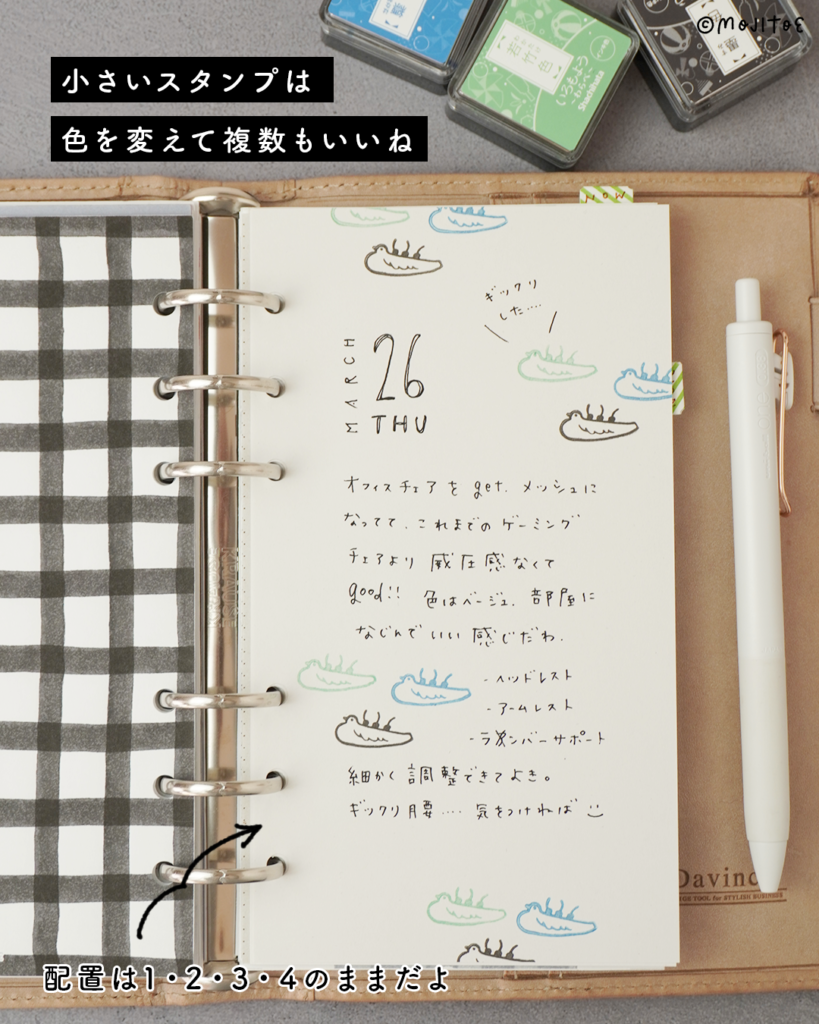 ©MOJITOE
小さいスタンプは
色を変えて複数もいいね
若竹色
いろもよう
-わらべ-
Shachihata
NOW
ギックリ
した····
MARCH
26
THU
オフィスチェアを get. メッシュに
なってて、これまでのゲーミング
チェアより 威圧感なくて
good!! 色はベージュ、部屋に
なじんでいい感じだわ.
-ヘッドレスト
-アームレスト
-ランバーサポート
細かく調整できてよき。
ギックリ腰···· 気をつければ
Davinc
配置は1・2・3・4のままだよ